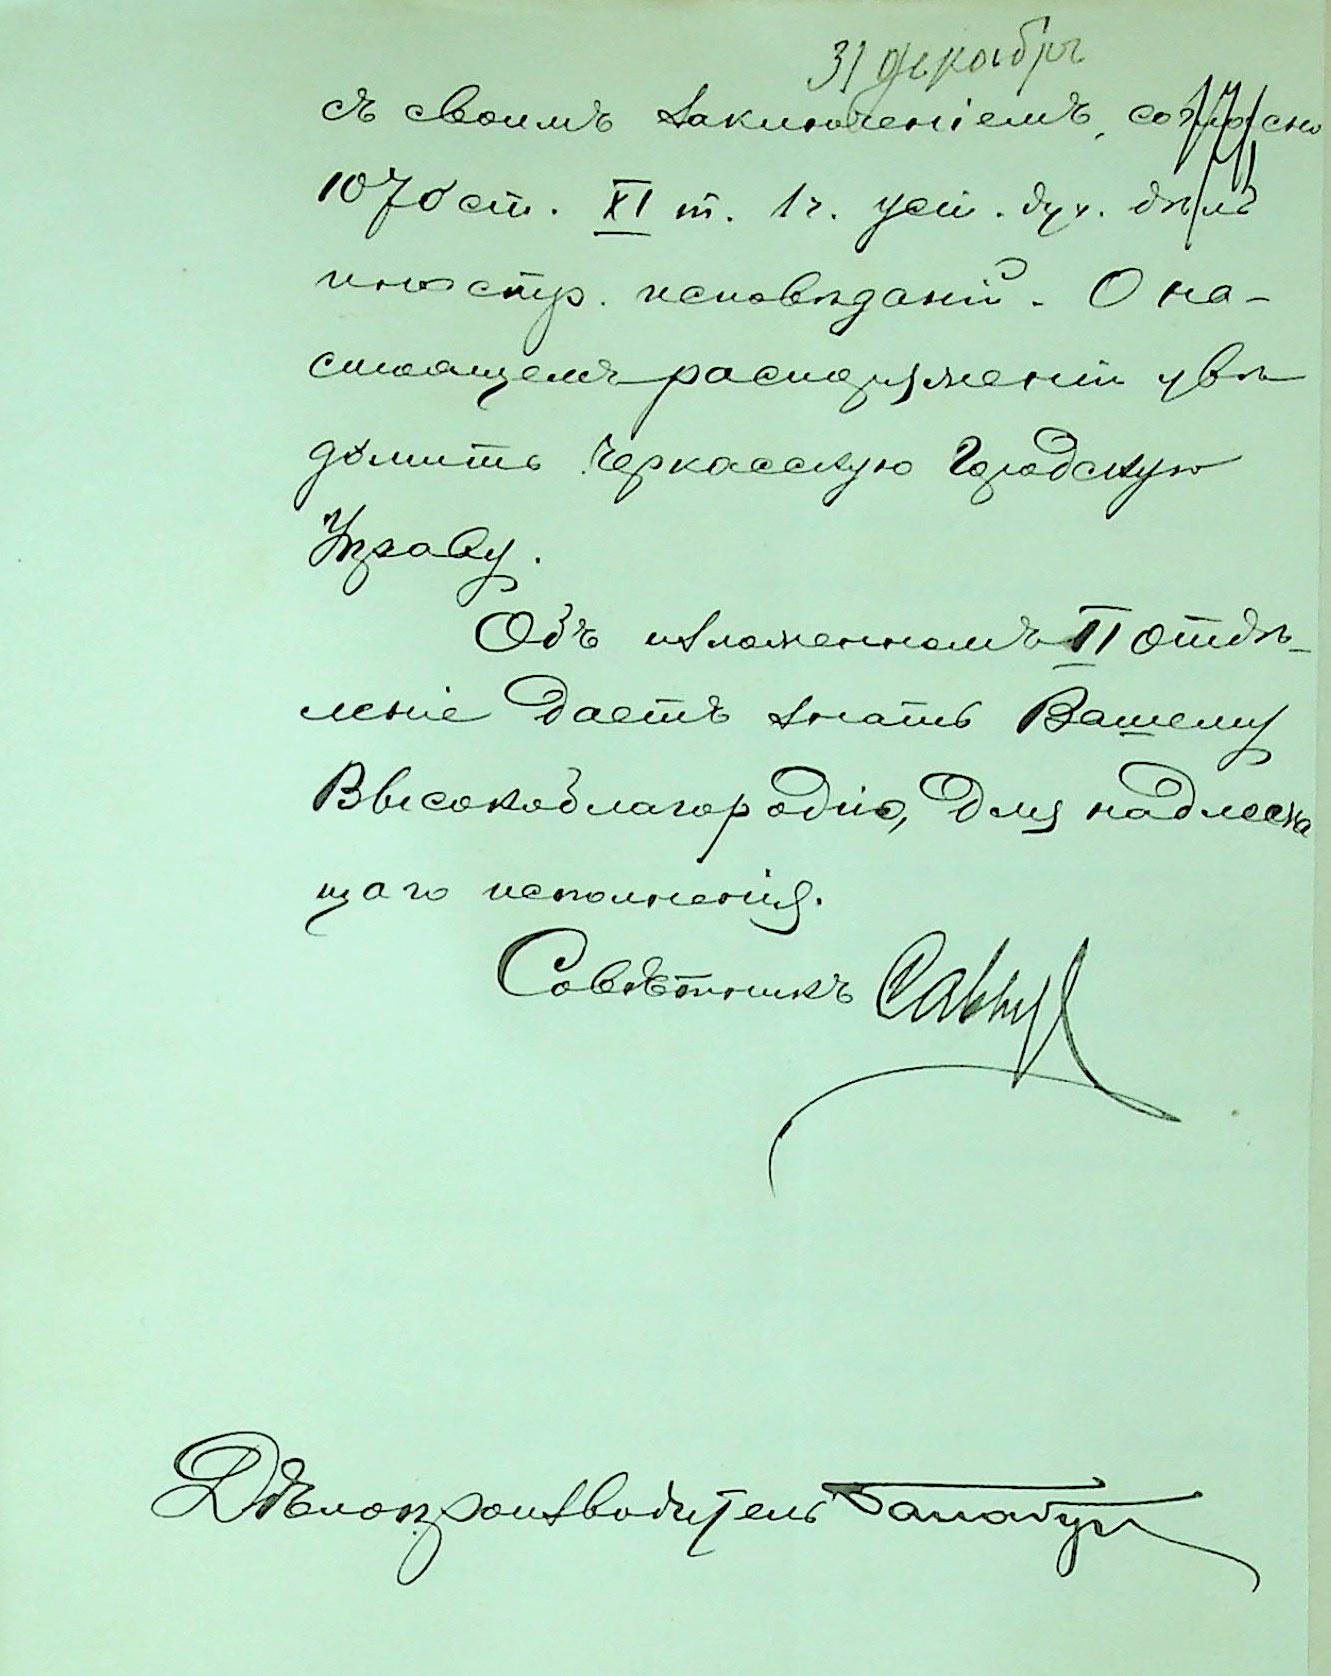 31 декабря
съ своимъ заключеніемъ, согласно
1070 ст. XI т. 1 ч. уст. дух. дѣлъ
иностр. исповѣданій. О на-
стоящемъ распоряженіи увѣ
домить Черкасскую Городскую
Управу.
Объ изложенномъ II отдѣ-
леніе даетъ знать Вашему
Высокоблагородію, для надлежа
щаго исполненія.
Совѣтникъ
Дѣлопроизводитель